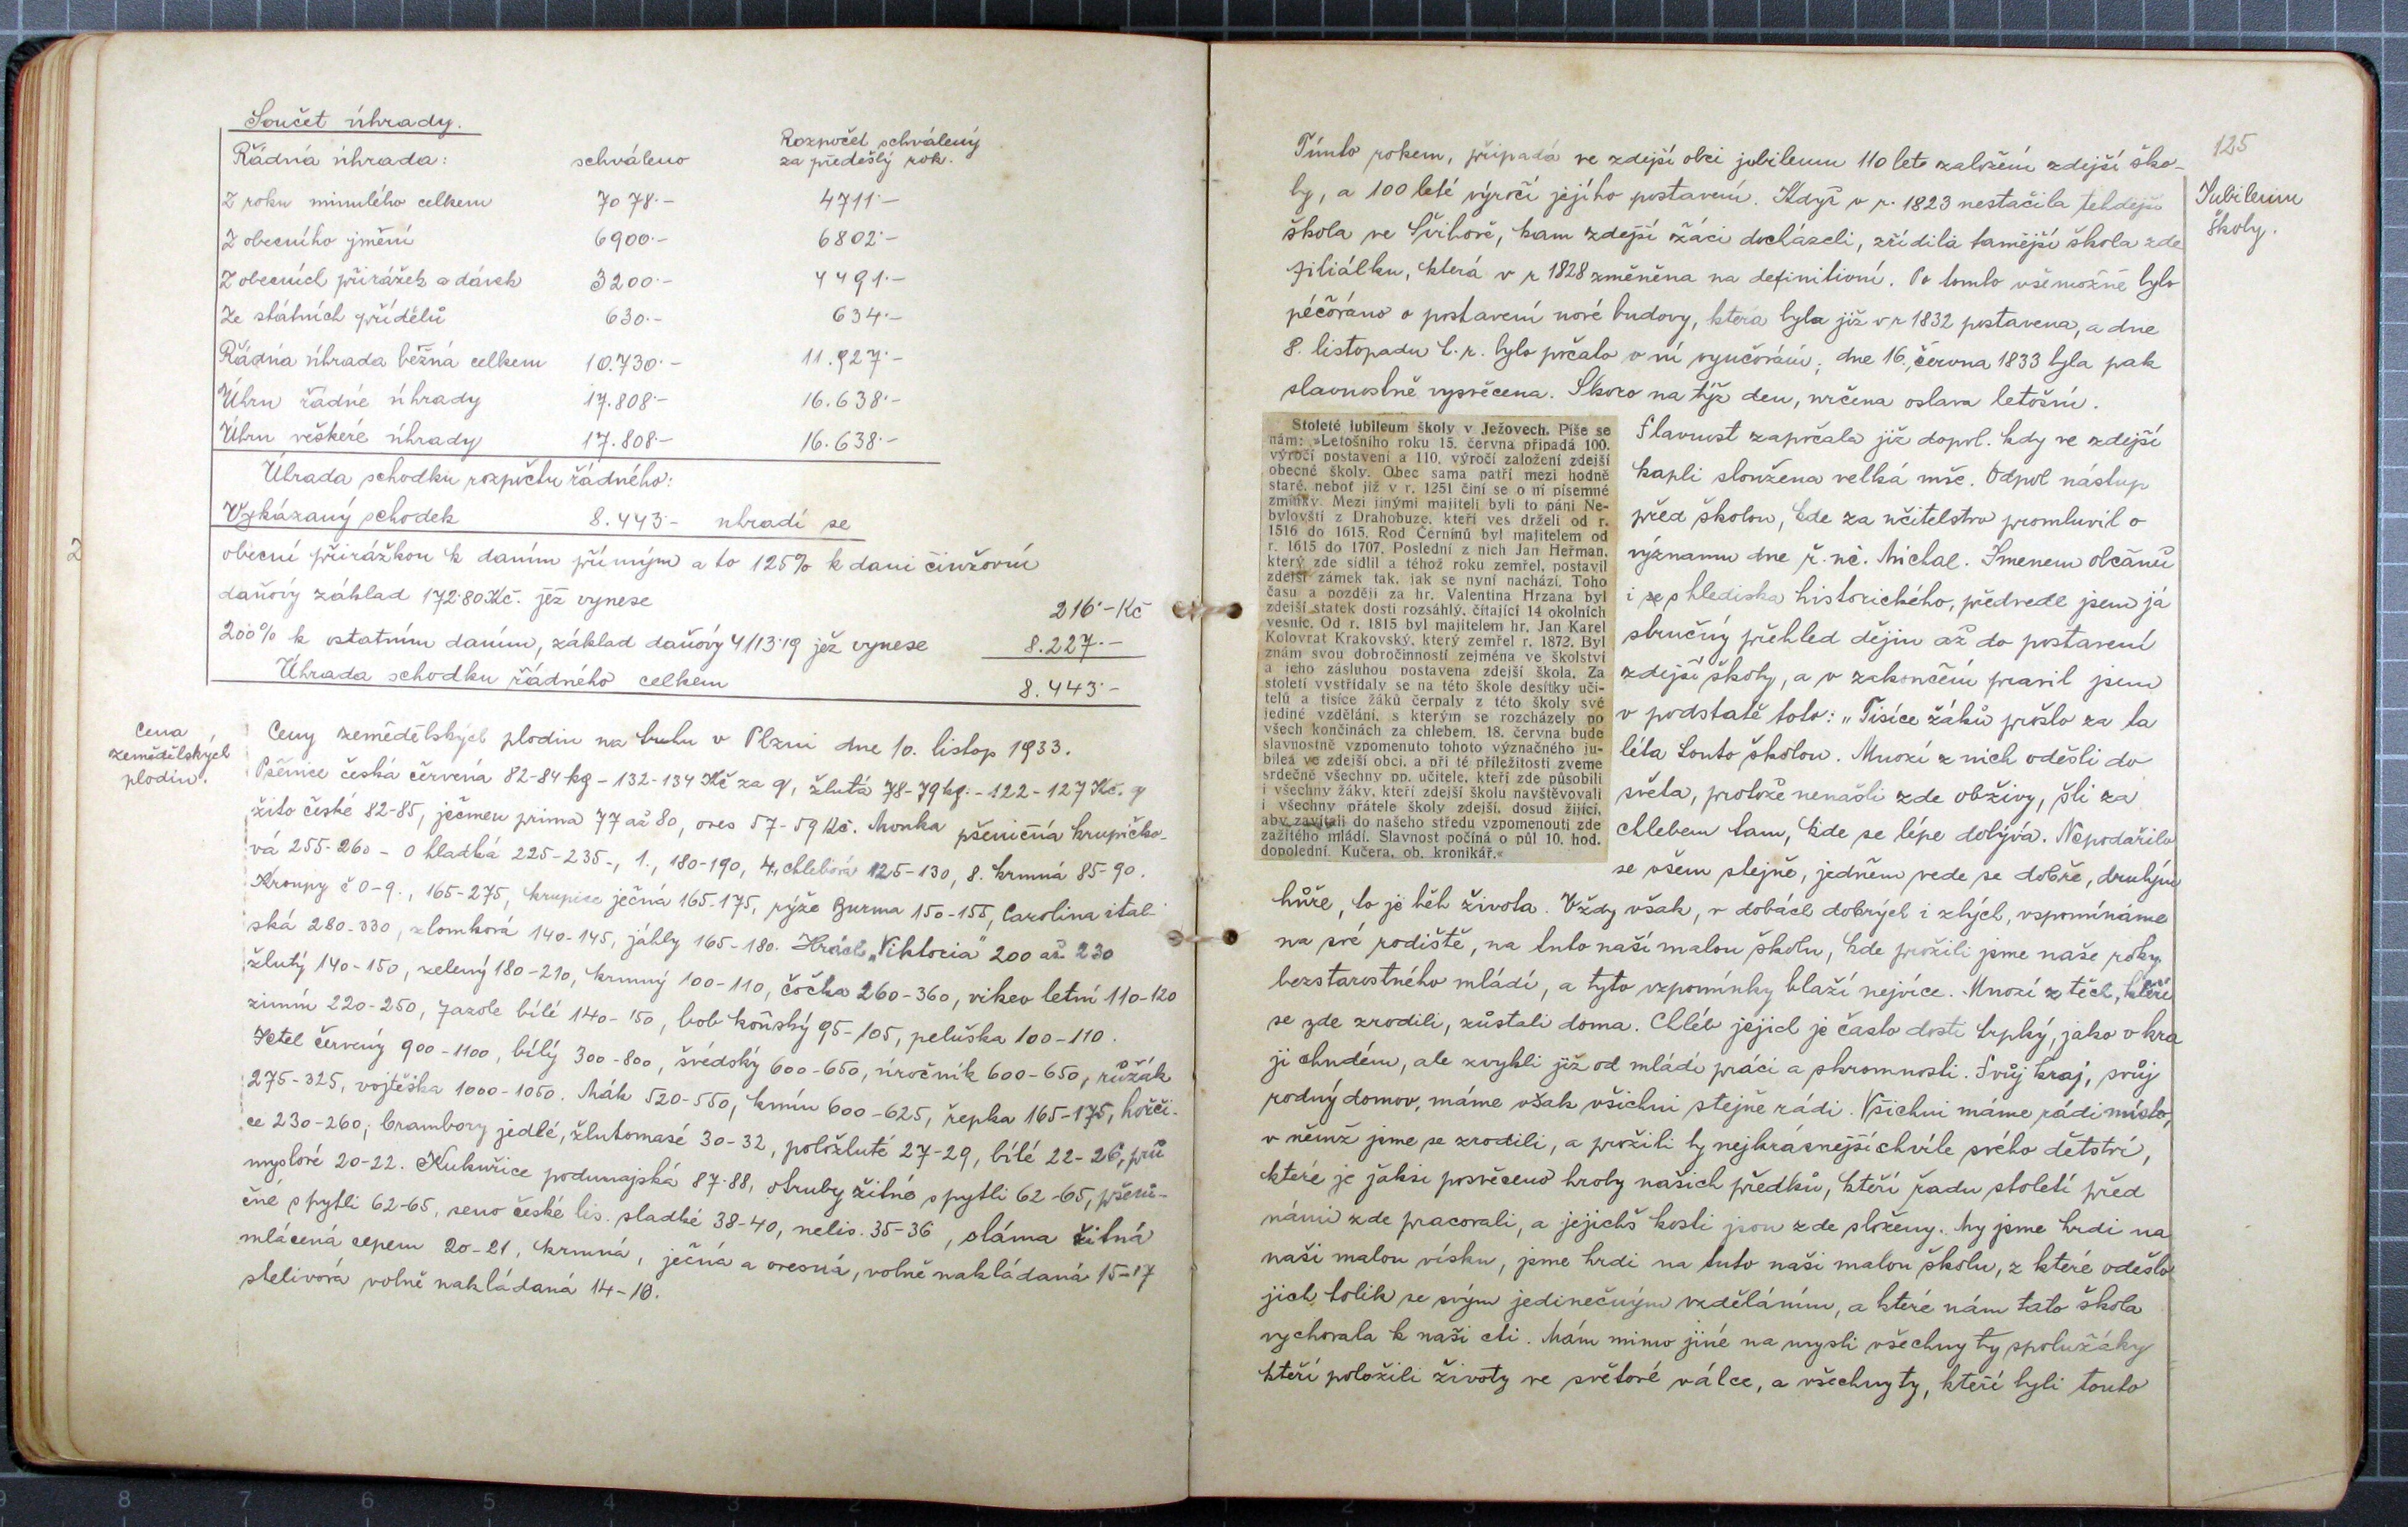 Součet úhrady.
Řádná úhrada: schváleno Rozpočet schválený
za předešlý rok.
Z roku minulého celkem 7078·- 4711·-
Z obecního jmění 6900·- 6802·-
Z obecních přirážek a dávek 3200·- 4491·-
Ze státních přídělů 630·- 634·-
Řádná úhrada běžná celkem 10.730·- 11.927·-
Úhrn řádné úhrady 17.808·- 16.638·-
Úhrn veškeré úhrady 17.808·- 16.638·-
Úhrada schodku rozpočtu řádného:
Vykázaný schodek 8.443·- uhradí se
obecní přirážkou k daním přímým a to 125% k dani činžovní
daňový základ 172·80 Kč. jež vynese 216·- Kč
200% k ostatním daním, základ daňový 4113·19 jež vynese 8.227·-
Úhrada schodku řádného celkem 8.443·-
Cena
zemědělských
plodin.
Ceny zemědělských plodin na trhu v Plzni dne 10. listop 1933.
Pšenice česká červená 82-84 kg - 132-134 Kč za q, žlutá 78-79 kg. - 122-127 Kč. q
žito české 82-85, ječmen prima 77 až 80, oves 57-59 Kč. Mouka pšeničná krupičko-
vá 255-260 - 0 hladká 225-235-, 1., 180-190, 4., chlebová 125-130, 8. krmná 85-90.
Kroupy č 0-9., 165-275, krupice ječná 165-175, rýže Burma 150-155, Carolina ital-
ská 280-330, zlomková 140-145, jáhly 165-180. Hrách „Viktoria" 200 až 230
žlutý 140-150, zelený 180-210, krmný 100-110, čočka 260-360, vikev letní 110-120
zimní 220-250, fazole bílé 140-150, bob koňský 95-105, peluška 100-110.
Jetel červený 900-1100, bílý 300-800, švédský 600-650, úročník 600-650, růžák
275-325, vojtěška 1000-1050. Mák 520-550, kmín 600-625, řepka 165-175, hořči-
ce 230-260, brambory jedlé, žlutomasé 30-32, položluté 27-29, bílé 22-26, prů
myslové 20-22. Kukuřice podunajská 87-88, otruby žitné s pytli 62-65, pšeni-
čné s pytli 62-65, seno české lis. sladké 38-40, nelis. 35-36, sláma žitná
mlácená cepem 20-21, krmná, ječná a ovesná, volně nakládaná 15-17
stelivová volně nakládaná 14-16.
125
Jubileum
školy.
Tímto rokem, připadá ve zdejší obci jubileum 110 leto založení zdejší ško-
ly, a 100 leté výročí jejího postavení. Když v r. 1823 nestačila tehdejší
škola ve Švihově, kam zdejší žáci docházeli, zřídila tamější škola zde
filiálku, která v r 1828 změněna na definitivní. Po tomto všemožně bylo
péčováno o postavení nové budovy, která byla již v r 1832 postavena, a dne
8. listopadu t. r. bylo počato v ní vyučování; dne 16. června 1833 byla pak
slavnostně vysvěcena. Skoro na týž den, určena oslava letošní.
Stoleté jubileum školy v Ježovech. Píše se
nám: »Letošního roku 15. června připadá 100.
výročí postavení a 110. výročí založení zdejší
obecné školy. Obec sama patří mezi hodně
staré, neboť již v r. 1251 činí se o ní písemné
zmínky. Mezi jinými majiteli byli to páni Ne-
bylovští z Drahobuze, kteří ves drželi od r.
1516 do 1615. Rod Černínů byl majitelem od
r. 1615 do 1707. Poslední z nich Jan Heřman,
který zde sídlil a téhož roku zemřel, postavil
zdejší zámek tak, jak se nyní nachází. Toho
času a později za hr. Valentina Hrzana byl
zdejší statek dosti rozsáhlý, čítající 14 okolních
vesnic. Od r. 1815 byl majitelem hr. Jan Karel
Kolovrat Krakovský, který zemřel r. 1872. Byl
znám svou dobročinností zejména ve školství
a jeho zásluhou postavena zdejší škola. Za
století vystřídaly se na této škole desítky uči-
telů a tisíce žáků čerpaly z této školy své
jediné vzdělání, s kterým se rozcházely po
všech končinách za chlebem. 18. června bude
slavnostně vzpomenuto tohoto význačného ju-
bilea ve zdejší obci, a při té příležitosti zveme
srdečně všechny pp. učitele, kteří zde působili
i všechny žáky, kteří zdejší školu navštěvovali
i všechny přátele školy zdejší, dosud žijící,
aby zavítali do našeho středu vzpomenouti zde
zažitého mládí. Slavnost počíná o půl 10. hod.
dopolední. Kučera, ob. kronikář.«
Slavnost započala již dopol. kdy ve zdejší
kapli sloužena velká mše. Odpol nástup
před školou, kde za učitelstvo promluvil o
významu dne ř. uč. Michal. Jmenem občanů
i se s hlediska historického, předvedl jsem já
stručný přehled dějin až do postavení
zdejší školy, a v zakončení pravil jsem
v podstatě toto: „Tisíce žáků prošlo za ta
léta touto školou. Mnozí z nich odešli do
světa, protože nenašli zde obživy, šli za
chlebem tam, kde se lépe dobývá. Nepodařilo
se všem stejně, jedněm vede se dobře, druhým
hůře, to je běh života. Vždy však, v dobách dobrých i zlých, vspomínáme
na své rodiště, na tuto naší malou školu, kde prožili jsme naše roky
bezstarostného mládí, a tyto vzpomínky blaží nejvíce. Mnozí z těch, kteří
se zde zrodili, zůstali doma. Chléb jejich je často dosti trpký, jako v kra
ji chudém, ale zvykli již od mládí práci a skromnosti. Svůj kraj, svůj
rodný domov, máme však všichni stejně rádi. Všichni máme rádi místo,
v němž jsme se zrodili, a prožili ty nejkrásnejší chvíle svého dětství,
které je jaksi posvěceno hroby našich předků, kteří řadu století před
námi zde pracovali, a jejichš kosti jsou zde složeny. My jsme hrdi na
naši malou vísku, jsme hrdi na tuto naši malou školu, z které odešlo
jich tolik se svým jedinečným vzděláním, a které nám tato škola
vychovala k naši cti. Mám mimo jiné na mysli všechny ty spolužáky
kteří položili životy ve světové válce, a všechny ty, kteří byli touto